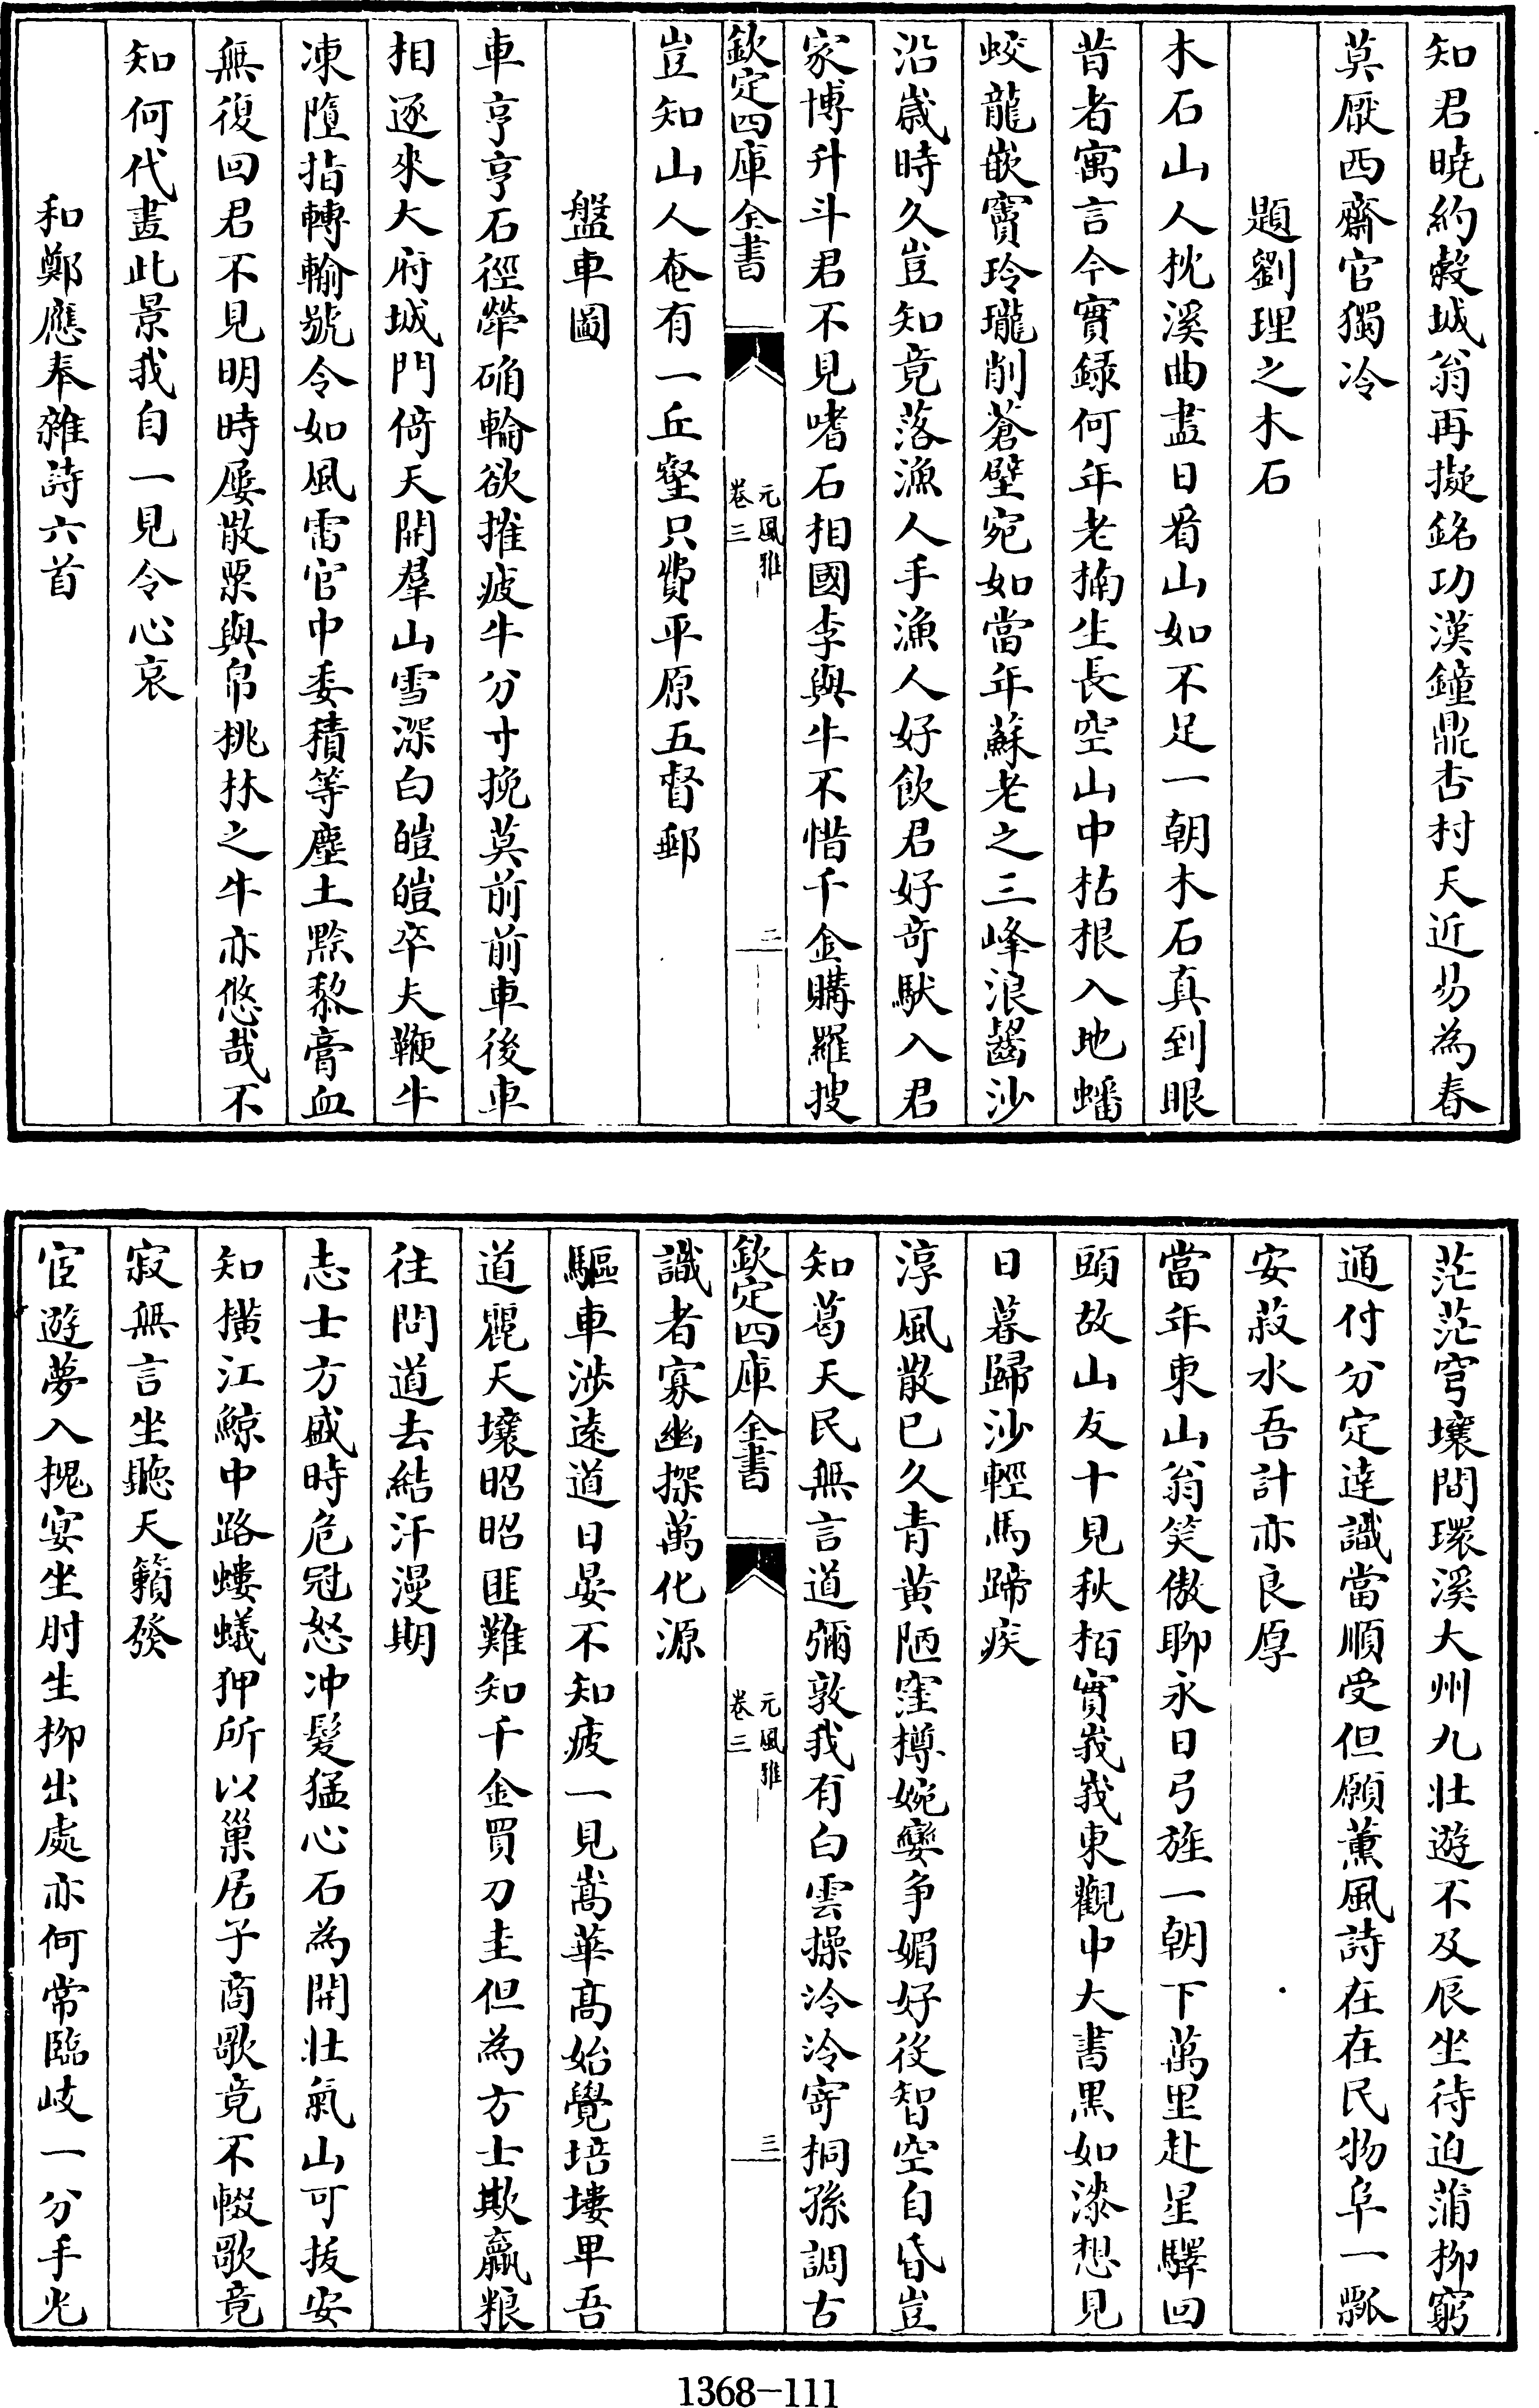 知君曉約穀城翁再擬銘功漢鐘鼎杏村天近易為春
莫厭西齋官獨冷
題劉理之木石
木石山人枕溪曲盡日看山如不足一朝木石真到眼
昔者寓言今實錄何年老楠生長空山中枯根入地蟠
蛟龍嵌竇玲瓏削蒼壁宛如當年蘇老之三峰浪齧沙
沿歲時久豈知竟落漁人手漁人好飲君好奇馱入君
家博升斗君不見嗜石相國李與牛不惜千金購羅搜
欽定四庫全書
元風雅
卷三
二
豈知山人奄有一丘壑只費平原五督郵
盤車圖
車亨亨石徑犖确輪欲摧疲牛分寸挽莫前前車後車
相逐來大府城門倚天開羣山雪深白皚皚卒夫鞭牛
凍墮指轉輸號令如風雷官中委積等塵土黔黎膏血
無復回君不見明時屢散粟與帛桃林之牛亦悠哉不
知何代畫此景我自一見令心哀
和鄭應奉雜詩六首
茫茫穹壤間環溪大州九壯遊不及辰坐待迫蒲柳窮
通付分定達識當順受但願薰風詩在在民物阜一瓢
安菽水吾計亦良厚
當年東山翁笑傲聊永日弓旌一朝下萬里赴星驛回
頭故山友十見秋栢實峩峩東觀中大書黑如漆想見
日暮歸沙輕馬蹄疾
淳風散已久青黃陋窪樽婉孌爭媚好役智空自昏豈
知葛天民無言道彌敦我有白雲操泠泠寄桐孫調古
欽定四庫全書
元風雅
卷三
三
識者寡幽探萬化源
驅車涉遠道日晏不知疲一見嵩華高始覺培塿卑吾
道麗天壤昭昭匪難知千金買刀圭但為方士欺贏糧
往問道去結汗漫期
志士方盛時危冠怒冲髮猛心石為開壯氣山可拔安
知橫江鯨中路螻蟻狎所以巢居子商歌竟不輟歌竟
寂無言坐聽天籟發
宦遊夢入槐宴坐肘生柳出處亦何常臨岐一分手光
1368-111